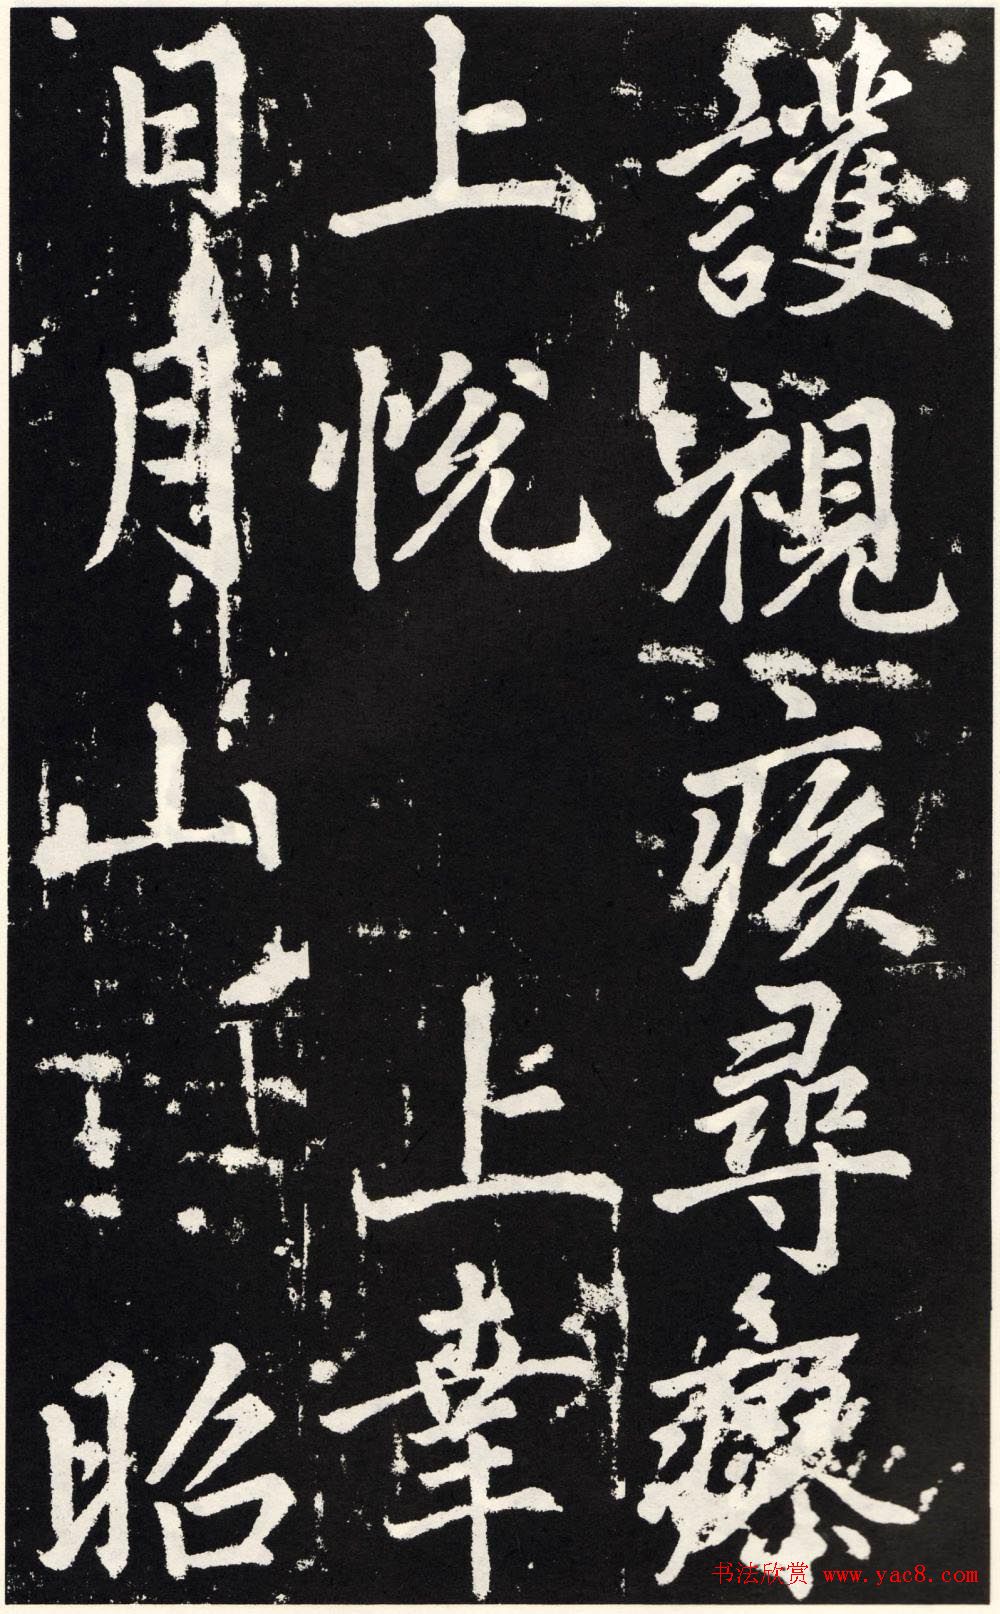 護視疾尋瘳
上悦 上幸
日月山 昭
书法欣赏 www.yac8.com